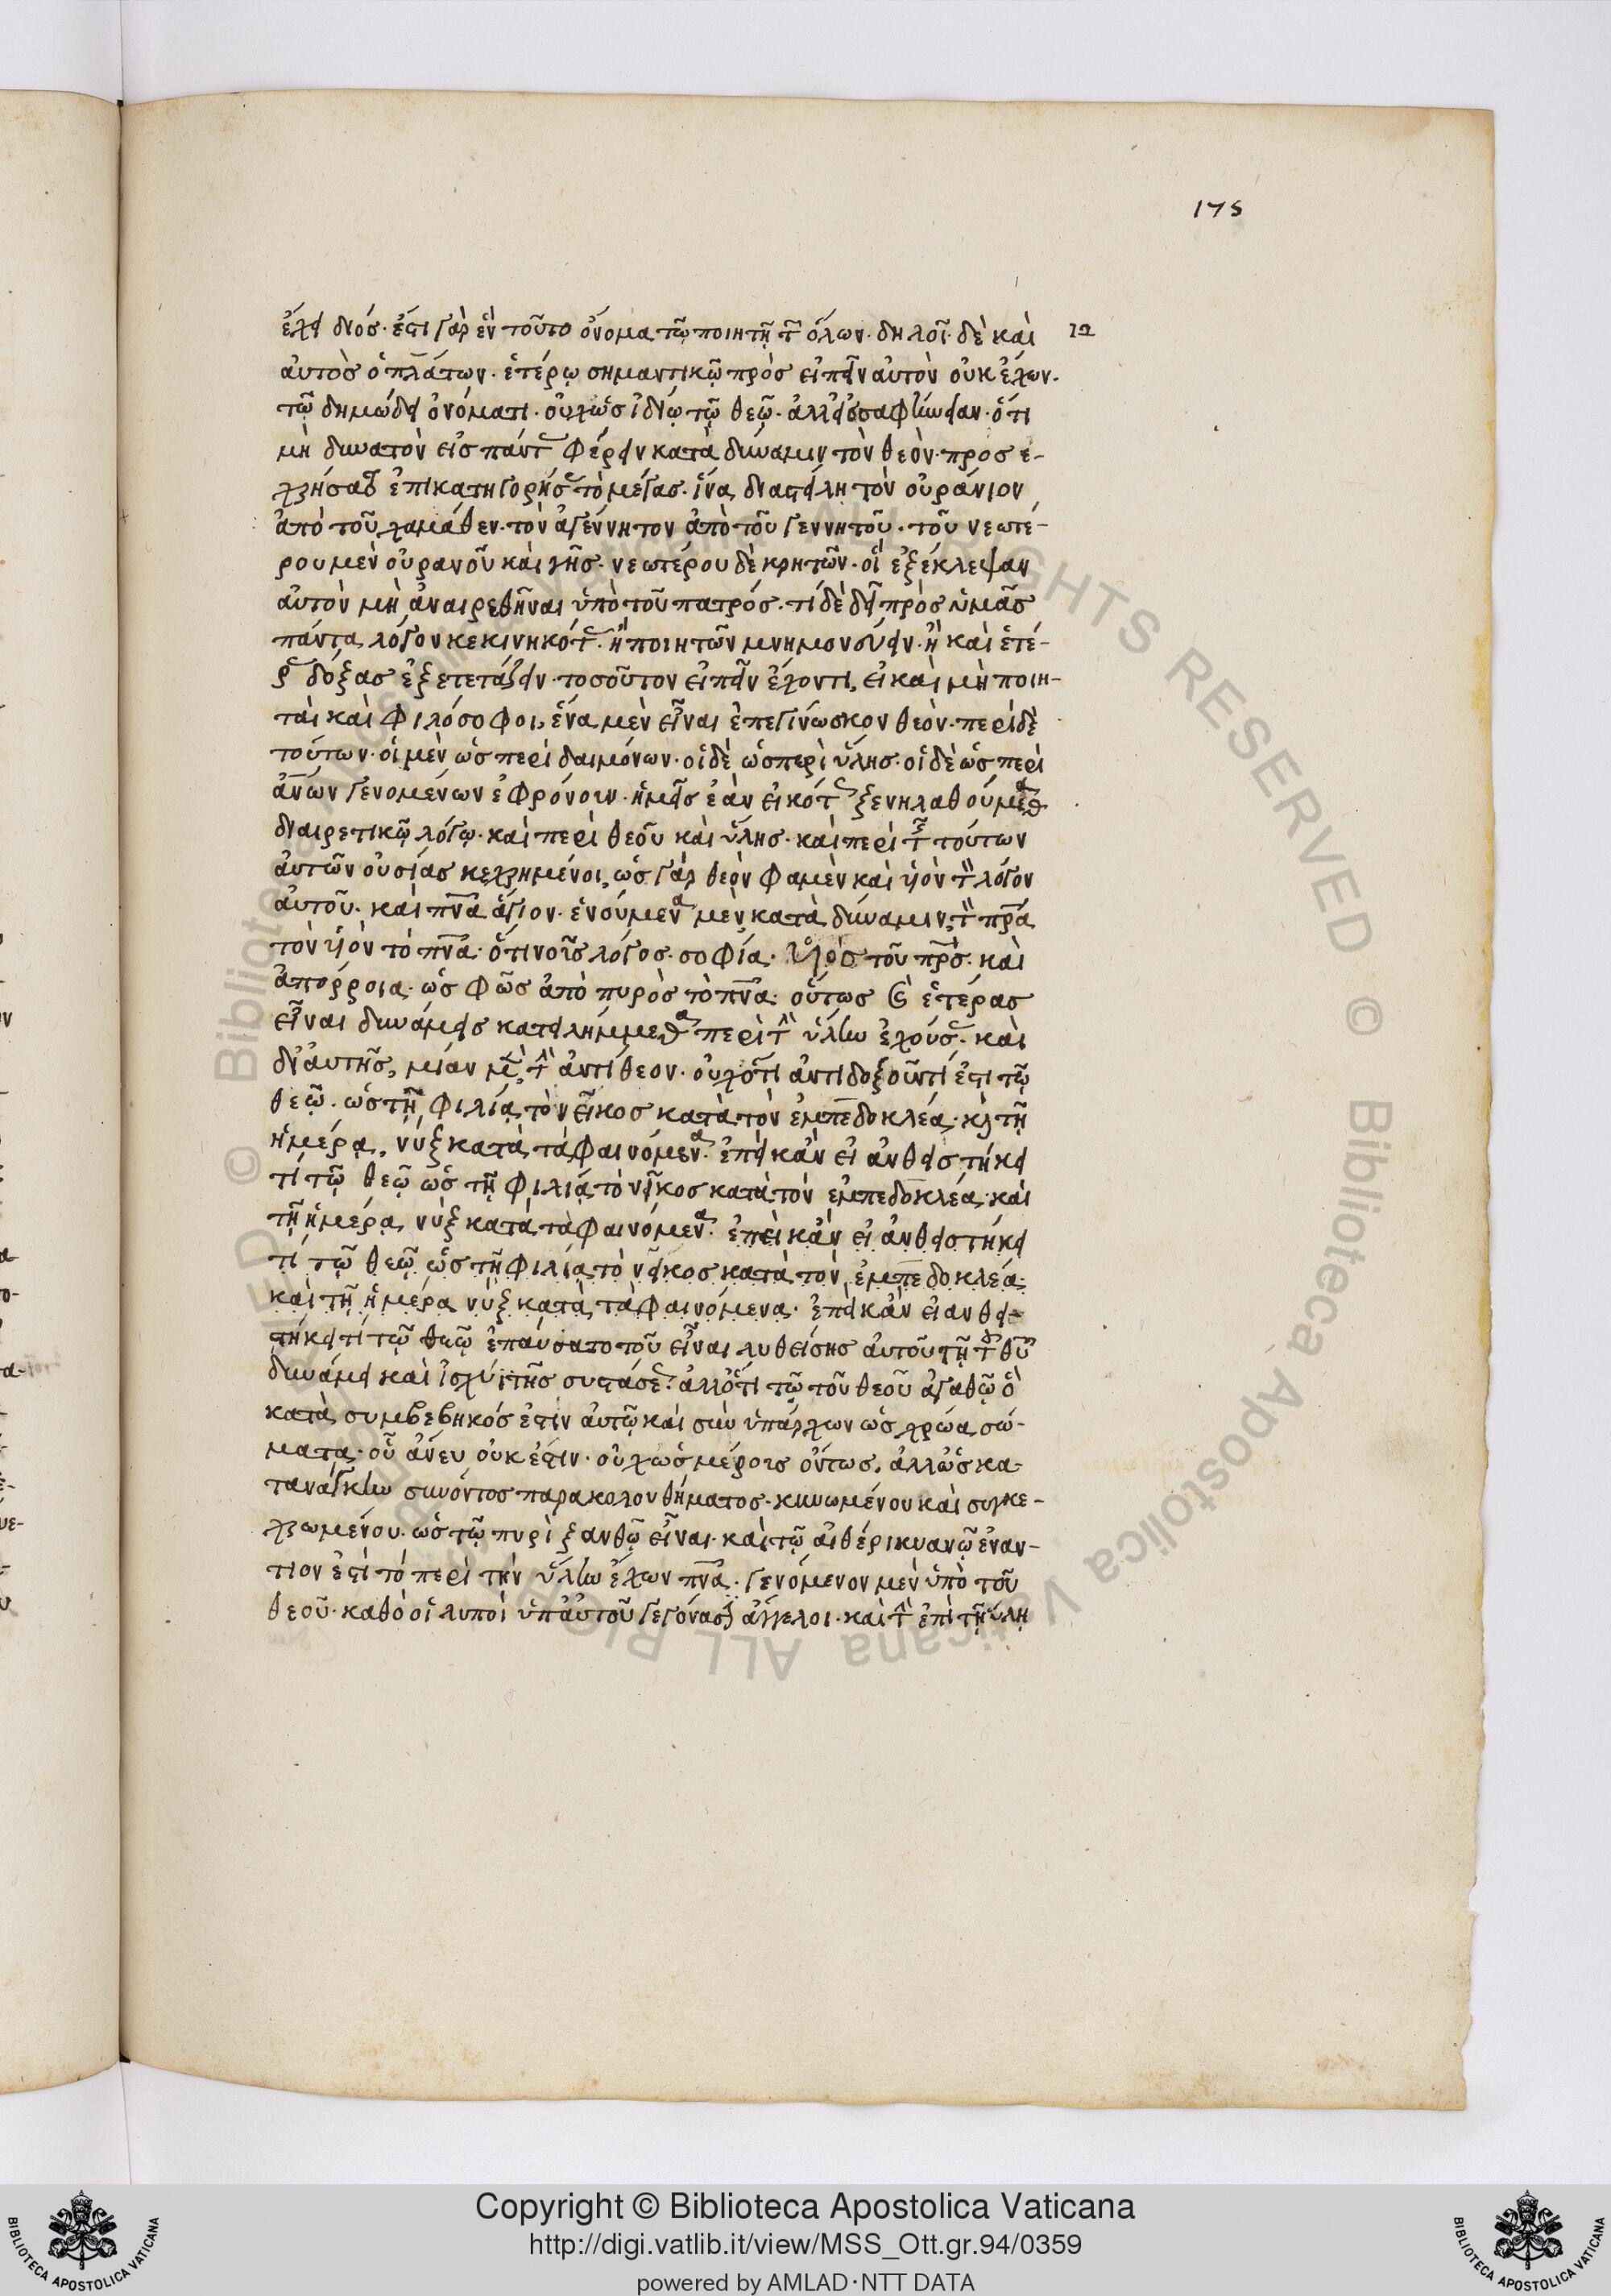 175
ἔχει διός· ἔστι γὰρ ἓν τοῦτο ὄνομα τῷ ποιητῇ τῶν ὅλων· δηλοῖ· δὲ καὶ 12
αὐτὸς ὁ πλάτων· ἑτέρῳ σημαντικῷ πρὸς εἰπεῖν αὐτὸν οὐκ ἔχων·
τῷ δημώδει ὀνόματι· οὐχ ὡς ἰδίῳ τῷ θεῷ· ἀλλ' εἰς σαφήνειαν· ὅτι
μὴ δυνατὸν εἰς πάντας φέρειν κατὰ δύναμιν τὸν θεὸν· προσε-
χρήσατο ἐπικατηγορήσας τὸ μέγας· ἵνα διαστείλη τὸν οὐράνιον
ἀπὸ τοῦ χαμάθεν· τὸν ἀγέννητον ἀπὸ τοῦ γεννητοῦ· τοῦ νεωτέ-
ρου μὲν οὐρανοῦ καὶ γῆς· νεωτέρου δὲ κρητῶν· οἳ ἐξέκλεψαν
αὐτὸν μὴ ἀναιρεθῆναι ὑπὸ τοῦ πατρός· τί δὲ δεῖ πρὸς ὑμᾶς
πάντα λόγον κεκινηκότας· ἢ ποιητῶν μνημονεύειν· ἢ καὶ ἑτέ-
ρας δόξας ἐξετετάζειν· τοσοῦτον εἰπεῖν ἔχοντι, εἰ καὶ μὴ ποιη-
ταὶ καὶ φιλόσοφοι, ἕνα μὲν εἶναι ἐπεγίνωσκον θεὸν· περὶ δὲ
τούτων· οἱ μὲν ὡς περὶ δαιμόνων· οἱ δὲ ὡς περὶ ὕλης· οἱ δὲ ὡς περὶ
ἀνων γενομένων ἐφρόνουν· ἡμεῖς ἐὰν εἰκότως ξενηλαθούμεθα
διαιρετικῷ λόγῳ· καὶ περὶ θεοῦ καὶ ὕλης· καὶ περὶ τῆς τούτων
αὐτῶν οὐσίας κεχρημένοι, ὡς γὰρ θεὸν φαμὲν καὶ υἱὸν τὸν λόγον
αὐτοῦ· καὶ πνα ἅγιον· ἑνούμενα μὲν κατὰ δύναμιν, τὸν πρα
τὸν υἱὸν τὸ πνα· ὅτι νοῦς λόγος· σοφία· υἱὸς τοῦ πρς· καὶ
ἀπόρροια· ὡς φῶς ἀπὸ πυρὸς τὸ πνα· οὕτως καὶ ἑτέρας
εἶναι δυνάμεις κατειλήμμεθα περὶ τὴν ὕλην ἐχούσας· καὶ
δι' αὐτῆς, μίαν μὲν τὴν ἀντίθεον· οὐχ ὅτι ἀντιδοξοῦν τί ἐστι τῷ
θεῷ· ὡς τῇ φιλίᾳ τὸν εἶκος κατὰ τὸν ἐμπεδοκλέα· καὶ τῇ
ἡμέρᾳ, νὺξ κατὰ τὰ φαινόμενα· ἐπεὶ κἂν εἰ ἀνθειστήκει
τί τῷ θεῷ ὡς τῇ φιλίᾳ τὸ νεῖκος κατὰ τὸν ἐμπεδοκλέα· καὶ
τῇ ἡμέρᾳ νὺξ κατὰ τὰ φαινόμενα· ἐπεὶ κἂν εἰ ἀνθειστήκει
τί τῷ θεῷ ὡς τῇ φιλίᾳ τὸ νεῖκος κατὰ τὸν ἐμπεδοκλέα·
καὶ τῇ ἡμέρᾳ νὺξ κατὰ τὰ φαινόμενα· ἐπεὶ κἂν εἰ ανθει-
στήκει τί τῷ θεῷ ἐπαύσατο τοῦ εἶναι λυθείσης αὐτοῦ τῇ τοῦ θυ
δυνάμει καὶ ἰσχύι τῆς συστάσεως· ἀλλ' ὅτι τῷ τοῦ θεοῦ ἀγαθῷ ὃ
κατὰ συμβεβηκός ἐστιν αὐτῷ καὶ συν ὑπάρχων ὡς χρόα σώ-
ματα· οὗ ἄνευ οὐκ ἔστιν· οὐχ ὡς μέροις ὄντως, ἀλλ' ὡς κα-
τανάγκην συνόντος παρακολουθήματος· κινωμένου καὶ συγκε-
χρωμένου· ὡς τῷ πυρὶ ξανθῷ εἶναι· καὶ τῷ αἰθέρι κυανῷ ἐναν-
τιον ἐστὶ τὸ περὶ τὴν ὕλην ἔχων πνα· γενόμενον μὲν ὑπὸ τοῦ
θεοῦ· καθὸ οἱ λυποὶ ὑπ' αὐτοῦ γεγόνασι ἄγγελοι· καὶ τὴν ἐπὶ τῇ ὕλῃ
© Biblioteca Apostolica Vaticana ALL RIGHTS RESERVED
Copyright © Biblioteca Apostolica Vaticana
http://digi.vatlib.it/view/MSS_Ott.gr.94/0359
powered by AMLAD·NTT DATA
BIBLIOTECA APOSTOLICA VATICANA
BIBLIOTECA APOSTOLICA VATICANA